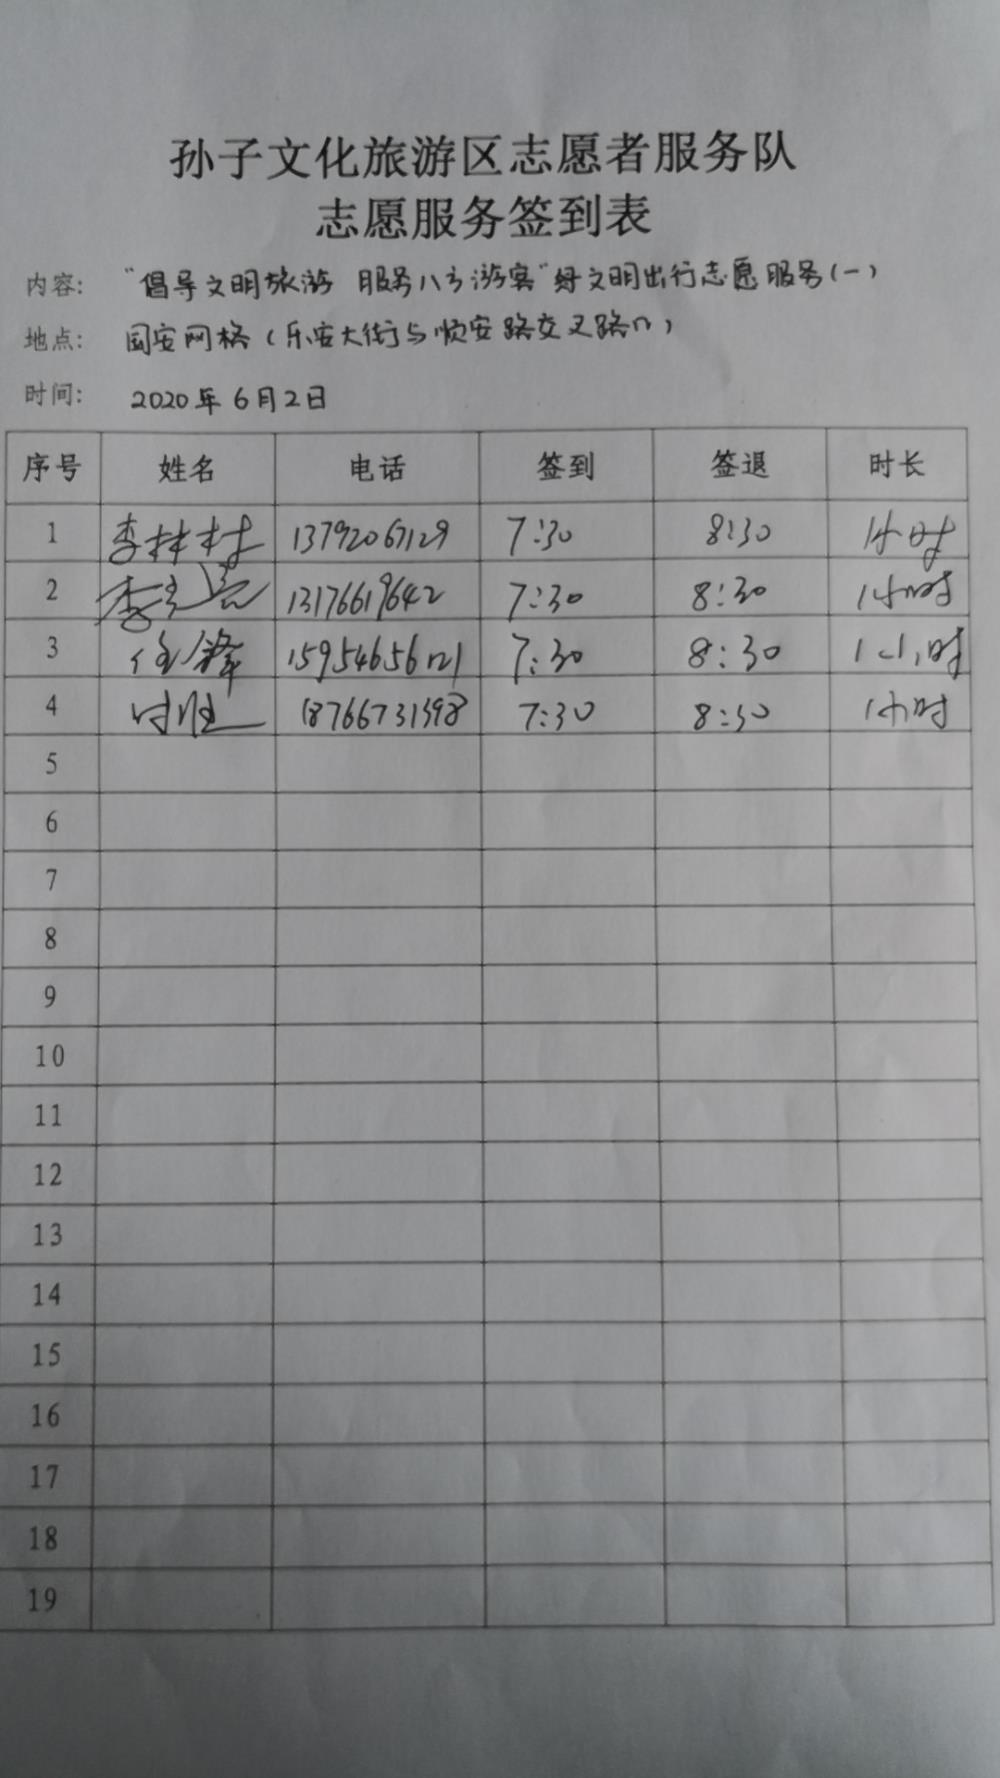 孙子文化旅游区志愿者服务队
志愿服务签到表
内容: “倡导文明旅游 服务八方游客”好文明出行志愿服务(一)
地点: 国安网格(乐安大街与顺安路交叉路口)
时间: 2020年6月2日
序号 姓名 电话 签到 签退 时长
1 李林村 13792067129 7:30 8:30 1小时
2 李 13176619642 7:30 8:30 1小时
3 任锋 15954656121 7:30 8:30 1小时
4 18766731398 7:30 8:30 1小时
5
6
7
8
9
10
11
12
13
14
15
16
17
18
19